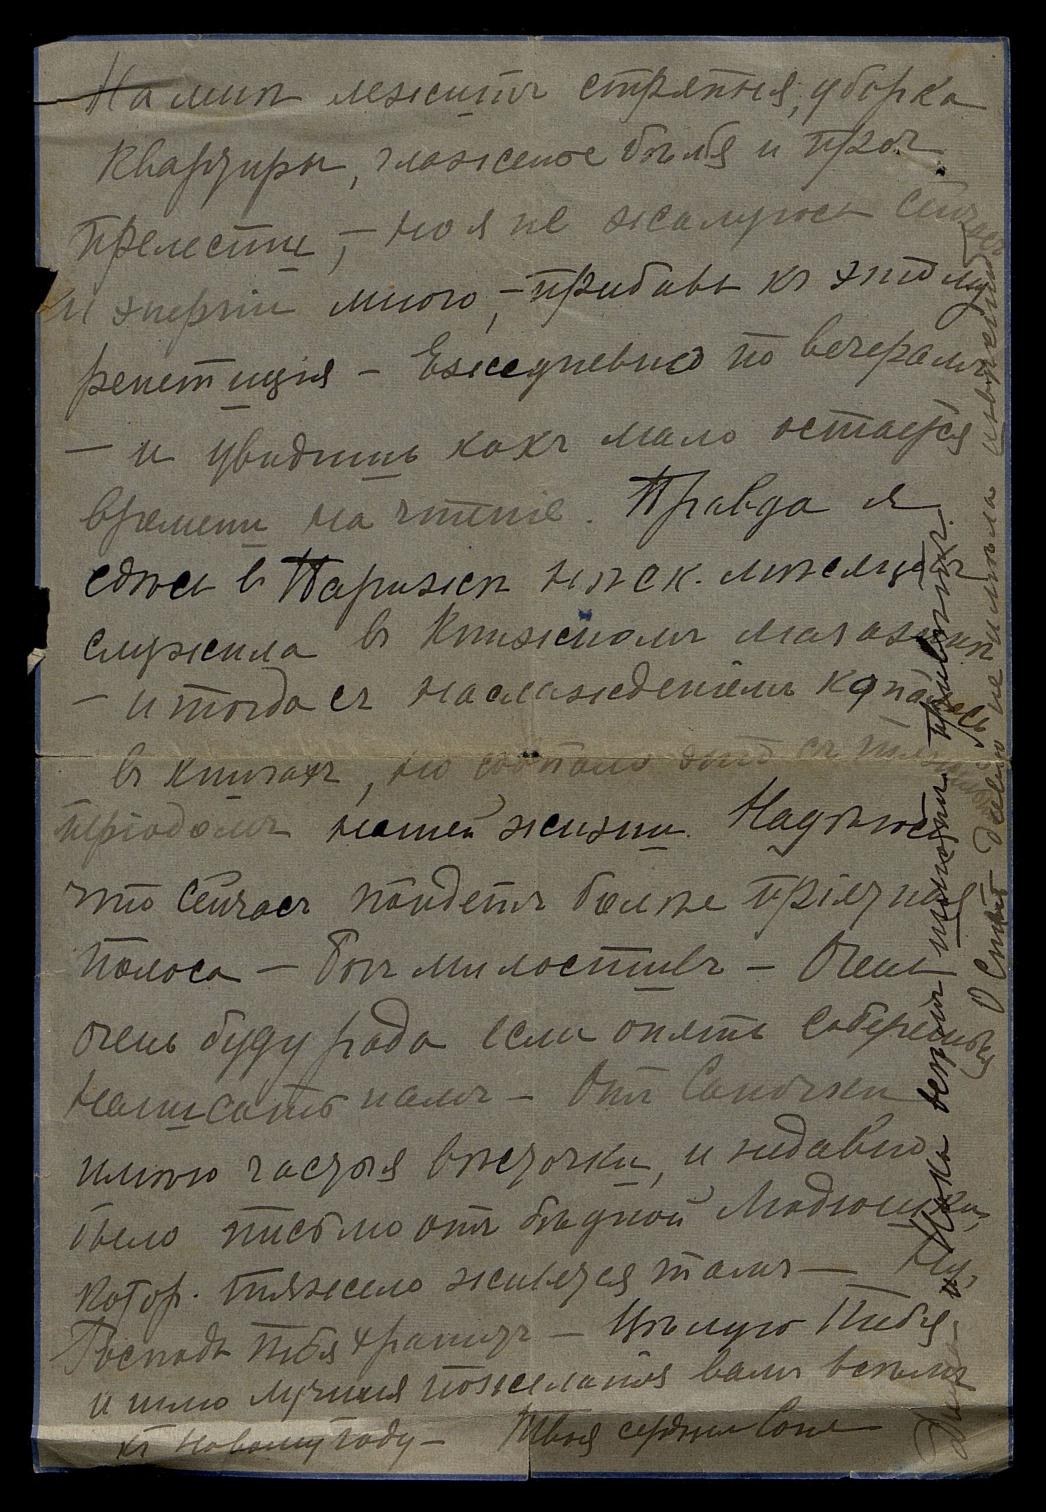 На мнѣ лежитъ стряпня, уборка
квартиры, глаженое бѣлье и проч.
прелести, – но я не жалуюсь сейчас
и энергіи много, – прибавь къ этому
репетиція – Ежедневно по вечерамъ
– и увидишь какъ мало остается
времени на чтніе. Правда я
здѣсь в Парижѣ нѣск. мѣсяцевъ
служила въ книжномъ магазинѣ
– и тогда съ наслажденіемъ копалась
въ книгахъ, но совпало это съ тяжелымъ
періодомъ нашей жизни. Надѣюсь
что сейчасъ пойдетъ болѣе пріятная
полоса – Богъ милостивъ – Очень
очень буду рада если опять соберешься
написать намъ – Отъ Санечки
имѣю частыя вѣсточки, и недавно
было письмо отъ бѣдной Мадюшки,
котор. тяжело живется тамъ – Ну,
Господь тебя хранитъ – Цѣлую тебя
и шлю лучшія пожеланія вамъ всѣмъ
къ новому году – Твоя сердцем Соня
и Мака всѣмъ шлютъ привѣтъ.
О Стёпѣ давно не имѣла извѣстій